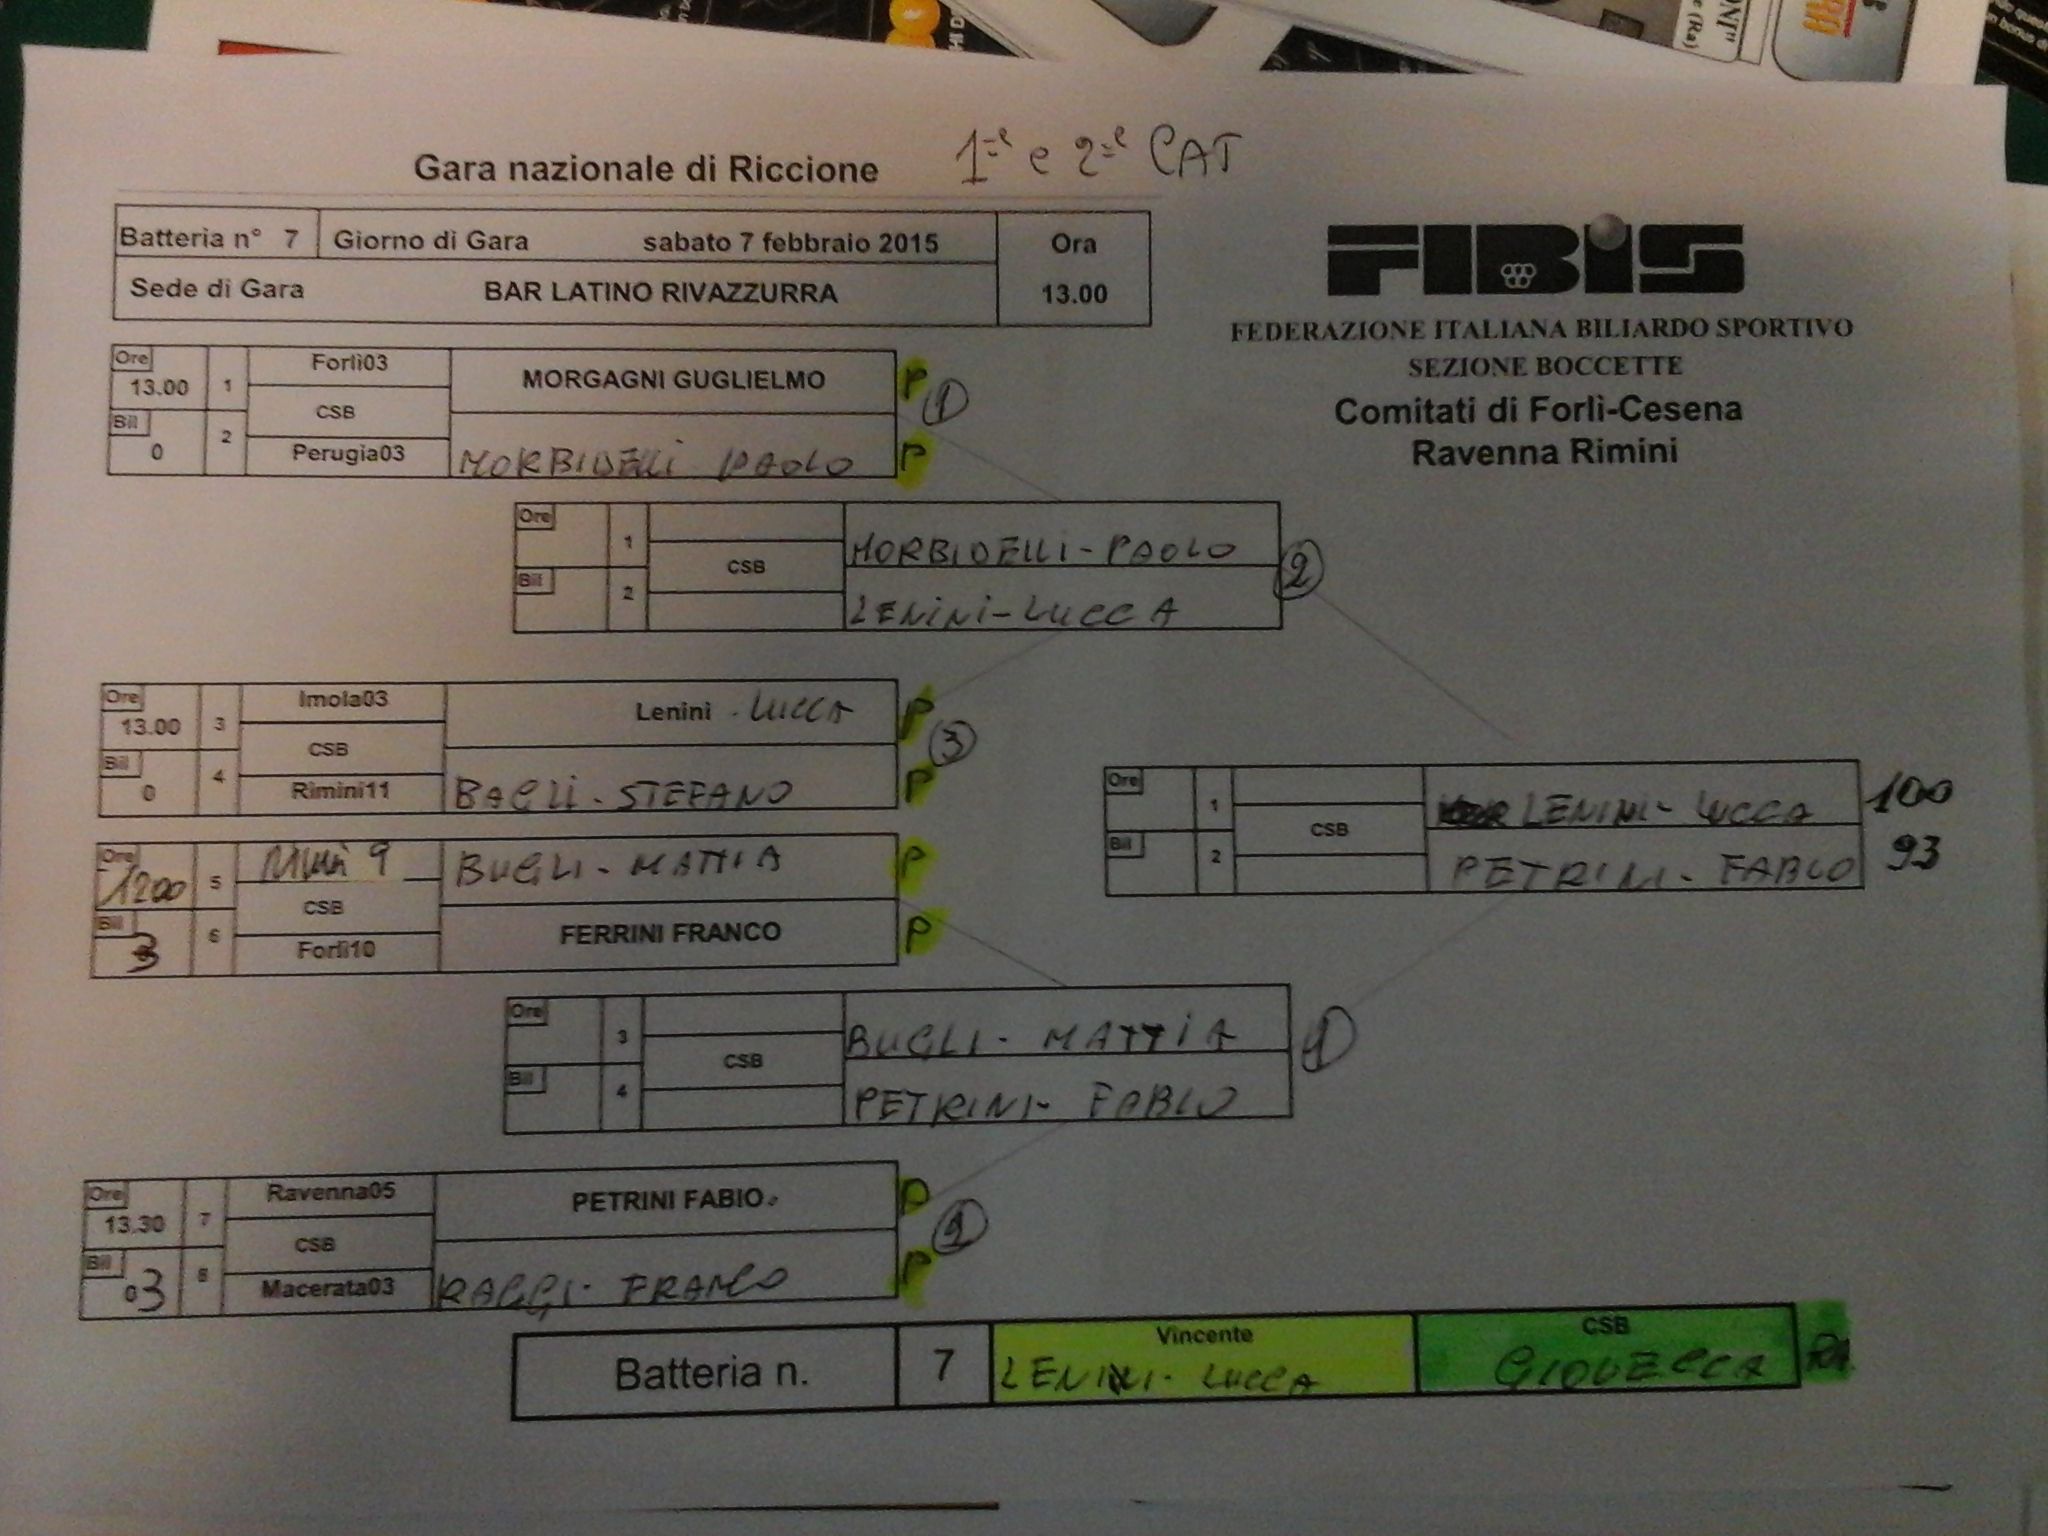 Gara nazionale di Riccione 1ª e 2ª CAT
Batteria n° 7 Giorno di Gara sabato 7 febbraio 2015 Ora
Sede di Gara BAR LATINO RIVAZZURRA 13.00
FIBIS
FEDERAZIONE ITALIANA BILIARDO SPORTIVO
SEZIONE BOCCETTE
Comitati di Forlì-Cesena
Ravenna Rimini
Ore 13.00 1 Forlì03 MORGAGNI GUGLIELMO P
CSB 1
Bil 0 2 Perugia03 MORBIDELLI PAOLO P
Ore 1 MORBIDELLI - PAOLO
CSB 2
Bil 2 LENINI - LUCCA
Ore 13.00 3 Imola03 Lenini - LUCCA P
CSB 3
Bil 0 4 Rimini11 BAGLI - STEFANO P
Ore 1 LENINI - LUCCA 100
CSB
Bil 2 PETRINI - FABIO 93
Ore 1200 5 9 BUGLI - MATTIA P
CSB
Bil 3 6 Forlì10 FERRINI FRANCO P
Ore 3 BUGLI - MATTIA
CSB 1
Bil 4 PETRINI - FABIO
Ore 13.30 7 Ravenna05 PETRINI FABIO. P
CSB
Bil 03 8 Macerata03 RAGGI - FRANCO P
Batteria n. 7 Vincente CSB
LENINI - LUCCA GIOVECCA RA